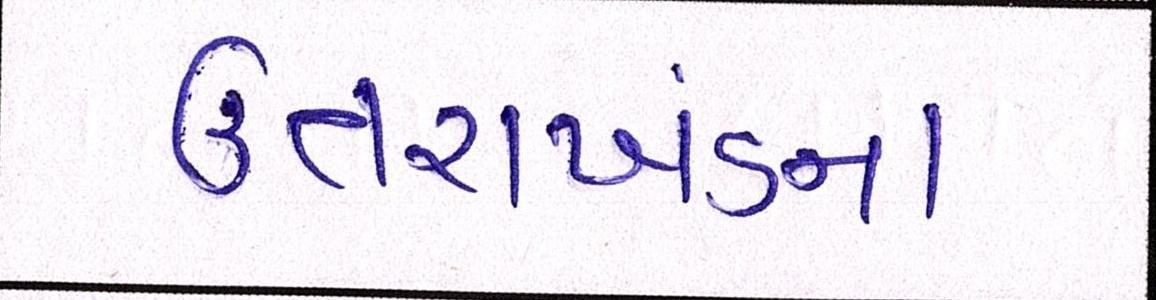 ઉતરાખંડના